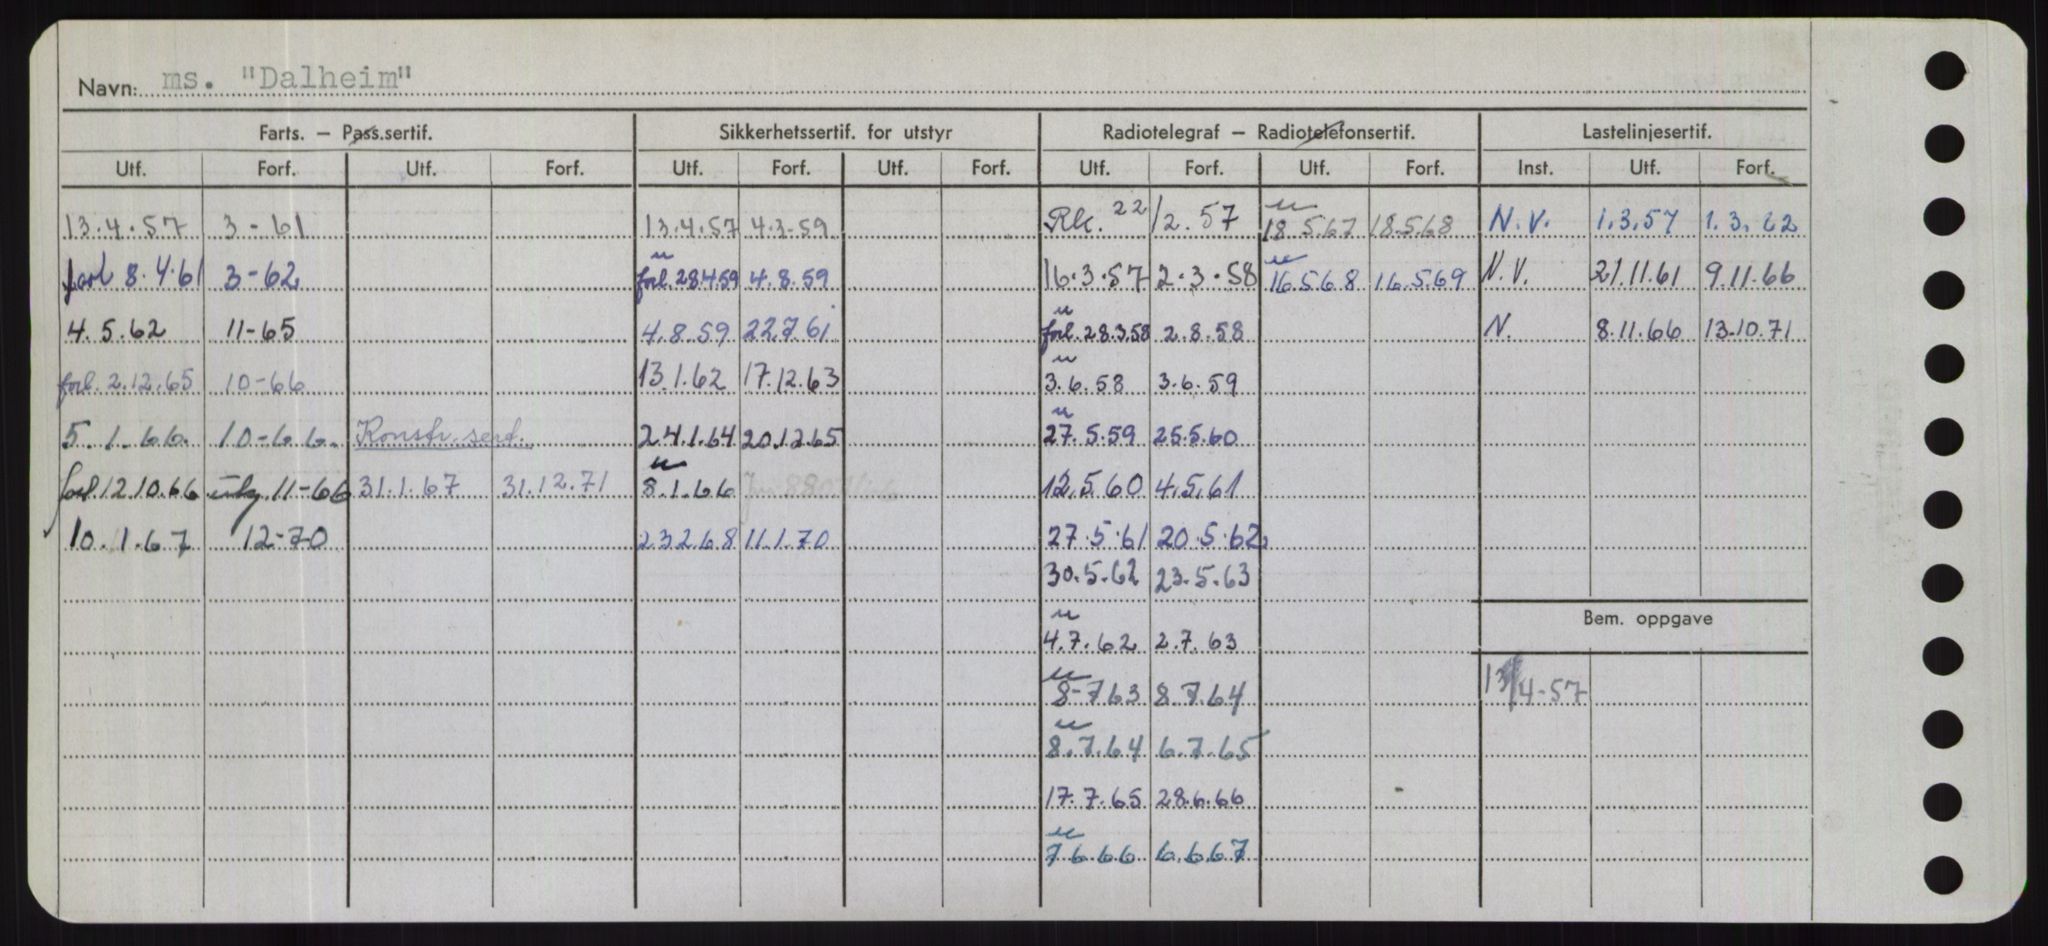 Navn: ms. "Dalheim"
Farts. — Pass.sertif. Sikkerhetssertif. for utstyr Radiotelegraf — Radiotelefonsertif. Lastelinjesertif.
Utf. Forf. Utf. Forf. Utf. Forf. Utf. Forf. Utf. Forf. Utf. Forf. Inst. Utf. Forf.
13.4.57 3-61 13.4.57 4.3.59 Rk. 22/2.57 u 18.5.67 18.5.68 N.V. 1.3.57 1.3.62
forl 8.4.61 3-62 u forl. 28.4.59 4.8.59 16.3.57 2.3.58 u 16.5.68 16.5.69 N.V. 21.11.61 9.11.66
4.5.62 11-65 4.8.59 22.7.61 u forl. 28.3.58 2.8.58 N. 8.11.66 13.10.71
forl. 2.12.65 10-66 13.1.62 17.12.63 u 3.6.58 3.6.59
5.1.66 10-66. Konstr.sert. 24.1.64 20.12.65 u 27.5.59 25.5.60
forl 12.10.66 utg. 11-66 31.1.67 31.12.71 u 8.1.66 12.5.60 4.5.61
10.1.67 12-70 23.2.68 11.1.70 27.5.61 20.5.62
30.5.62 23.5.63
Bem. oppgave
u 4.7.62 2.7.63
u 8-7.63 8.7.64 13/4-57
u 8.7.64 6.7.65
17.7.65 28.6.66
u 7.6.66 6.6.67